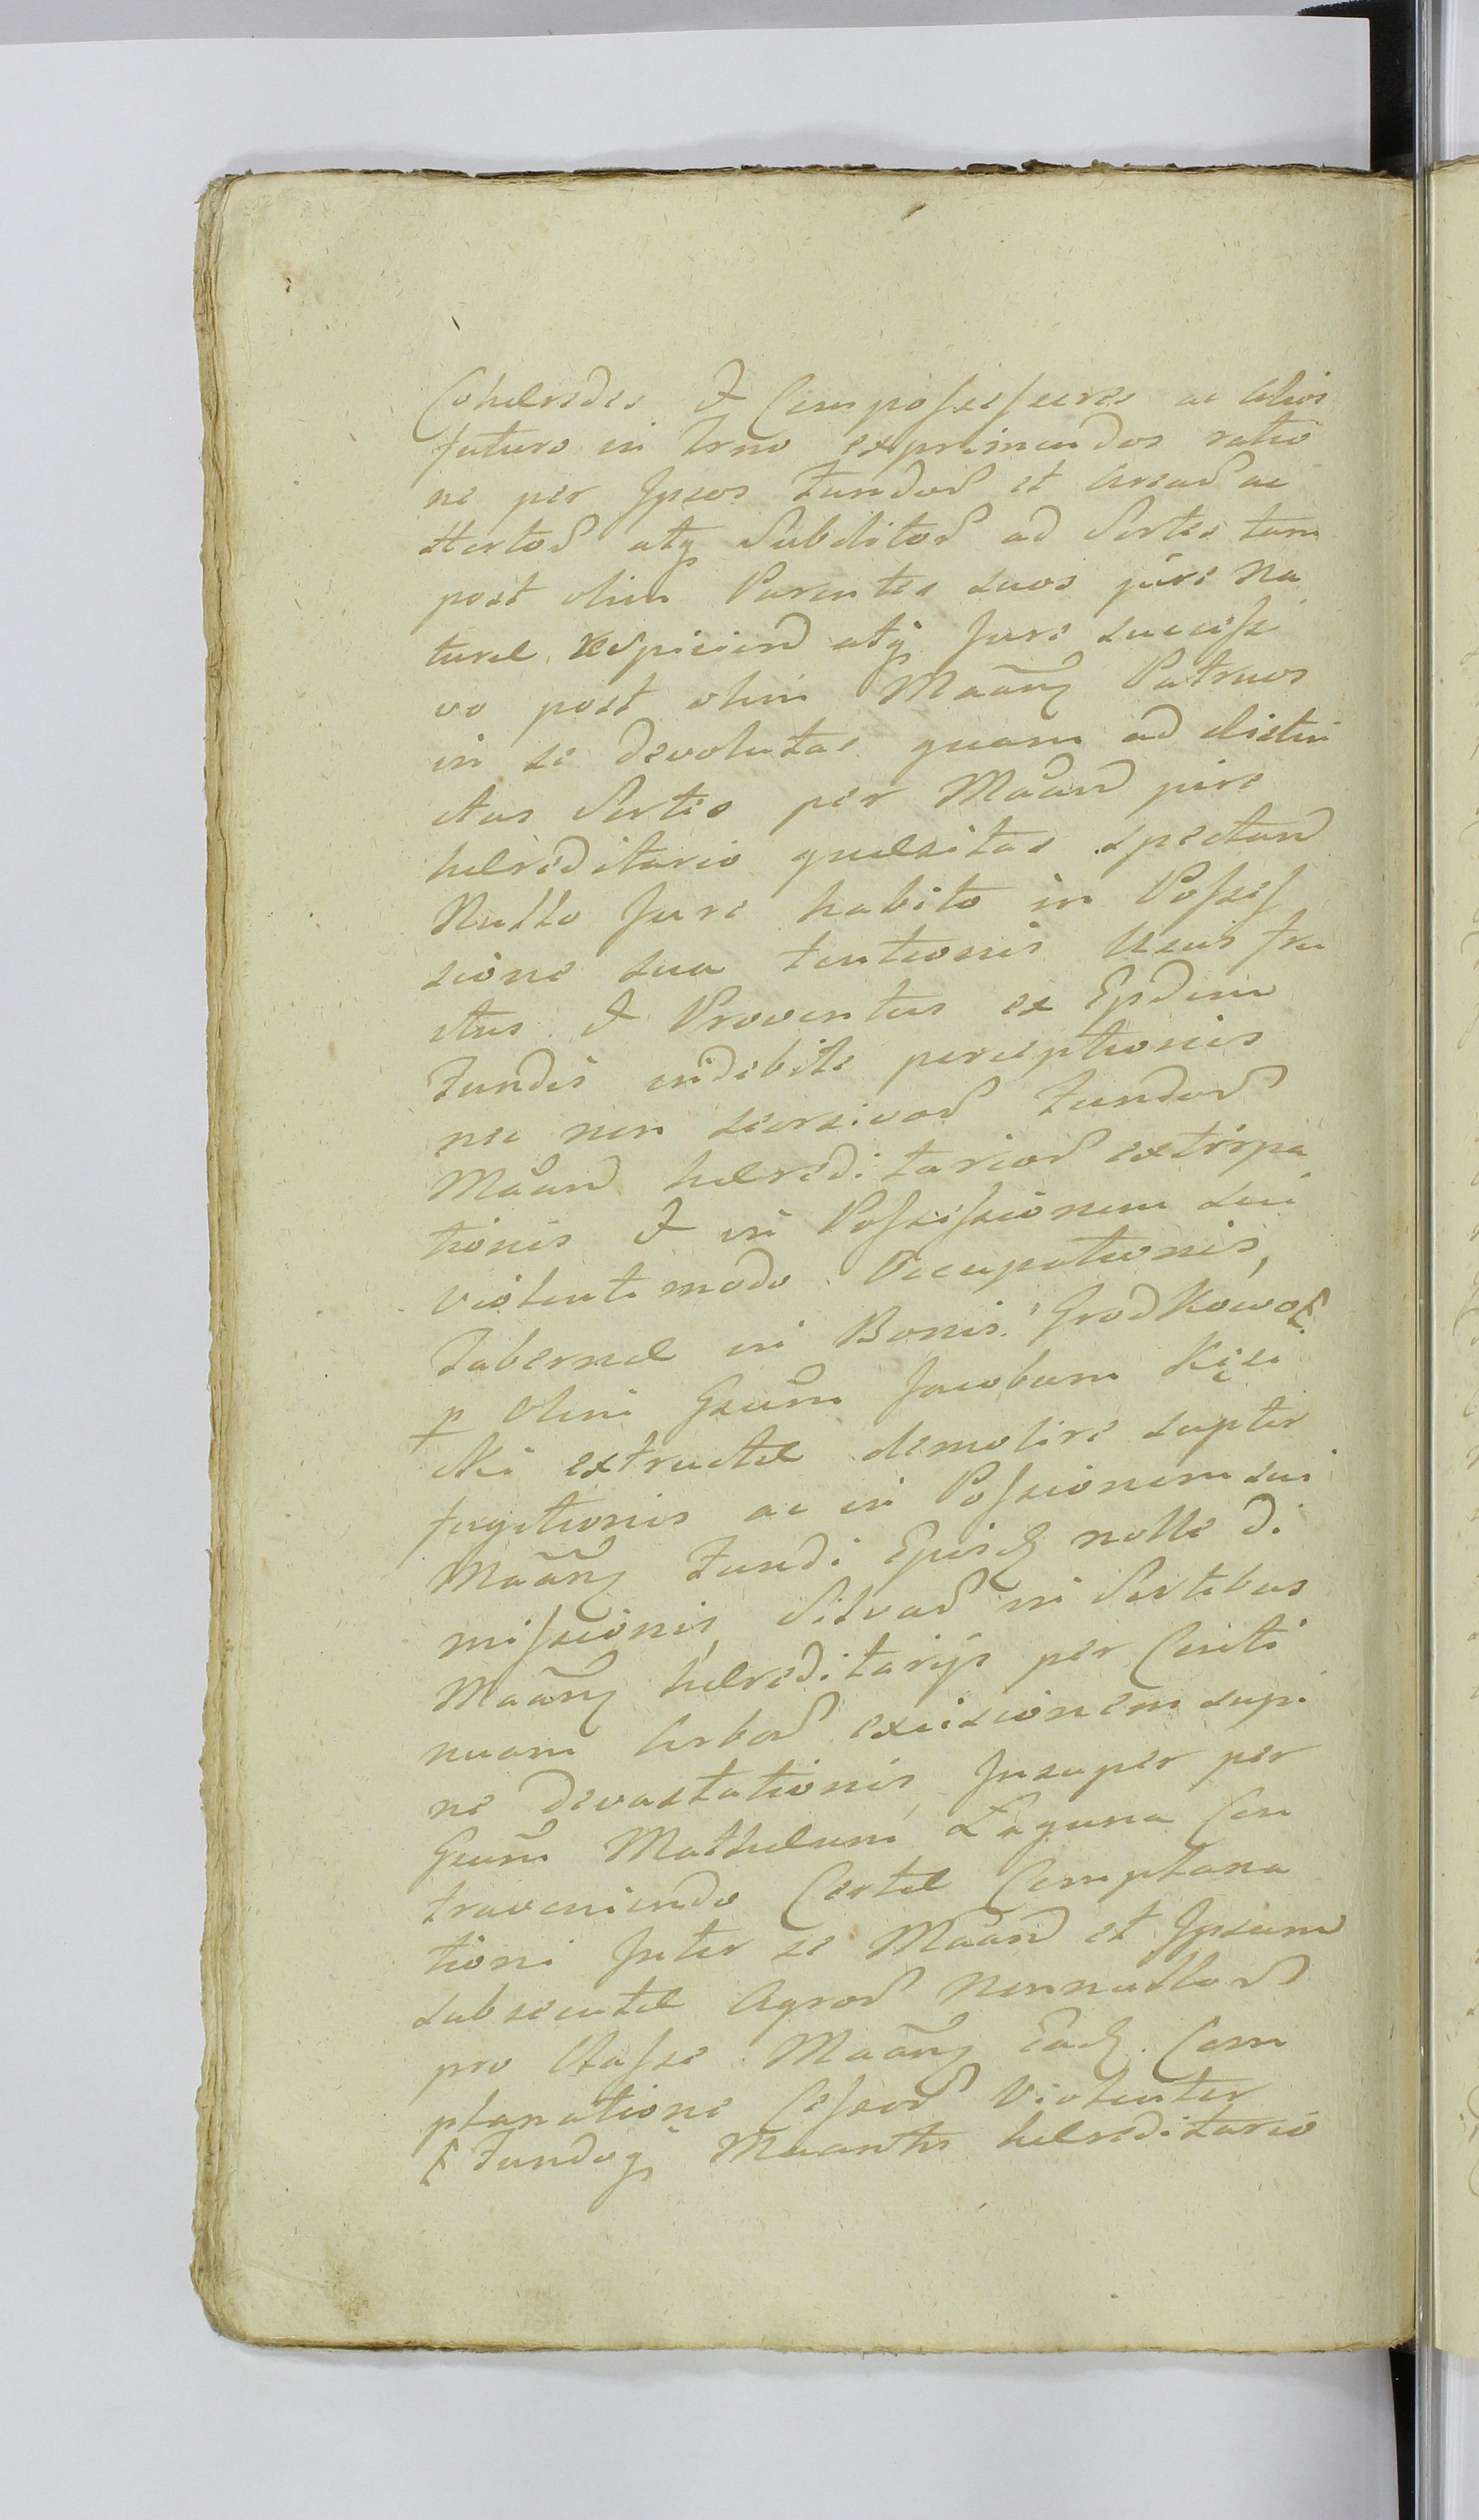 Cohæredes & Compossessores ac Alios
futuro in Trno exprimendos ratio
ne per Ipsos Fundor et Arear ac
Hortor atq Subditor ad Sortes tam
post olim Parentes suos jure Na
turæ respiciend atq Jure successi
vo post olim Maãng Patruos
in se devolutas quam ad distin
ctas Sortes per Maand jure
hæreditario quæsitas spectand
Nullo Jure habito in Posses
sione sua tentionis Usus fru
ctus & Proventus ex Eisdem
Fundis indebite perceptionis
nec non seorsivor Fundor
Maand hæreditarior extirpa
tionis & in Possessionem sui
violenti modo Occupationis,
Tabernæ in Bonis Grodkowo
p Olim Gsum Jacobum
cki extructæ demolire supter
fugitionis ac in Possionem sui
Maãng Fundi Ejusd nolle di
missionis, Silvar in Sortibus
Maãng hæreditarijs per Conti
nuam Arbor excisionem supi
ne devastationis, Insuper per
Gsum Mathæum Laguna Con
traveniendo Certæ Complana
tioni Inter se Maand et Ipsum
subsecutæ Agror Nonnullor
pro Classe Maãng Ead Com
planatione Cessor Violenter
Fundoq Maantis hæreditario